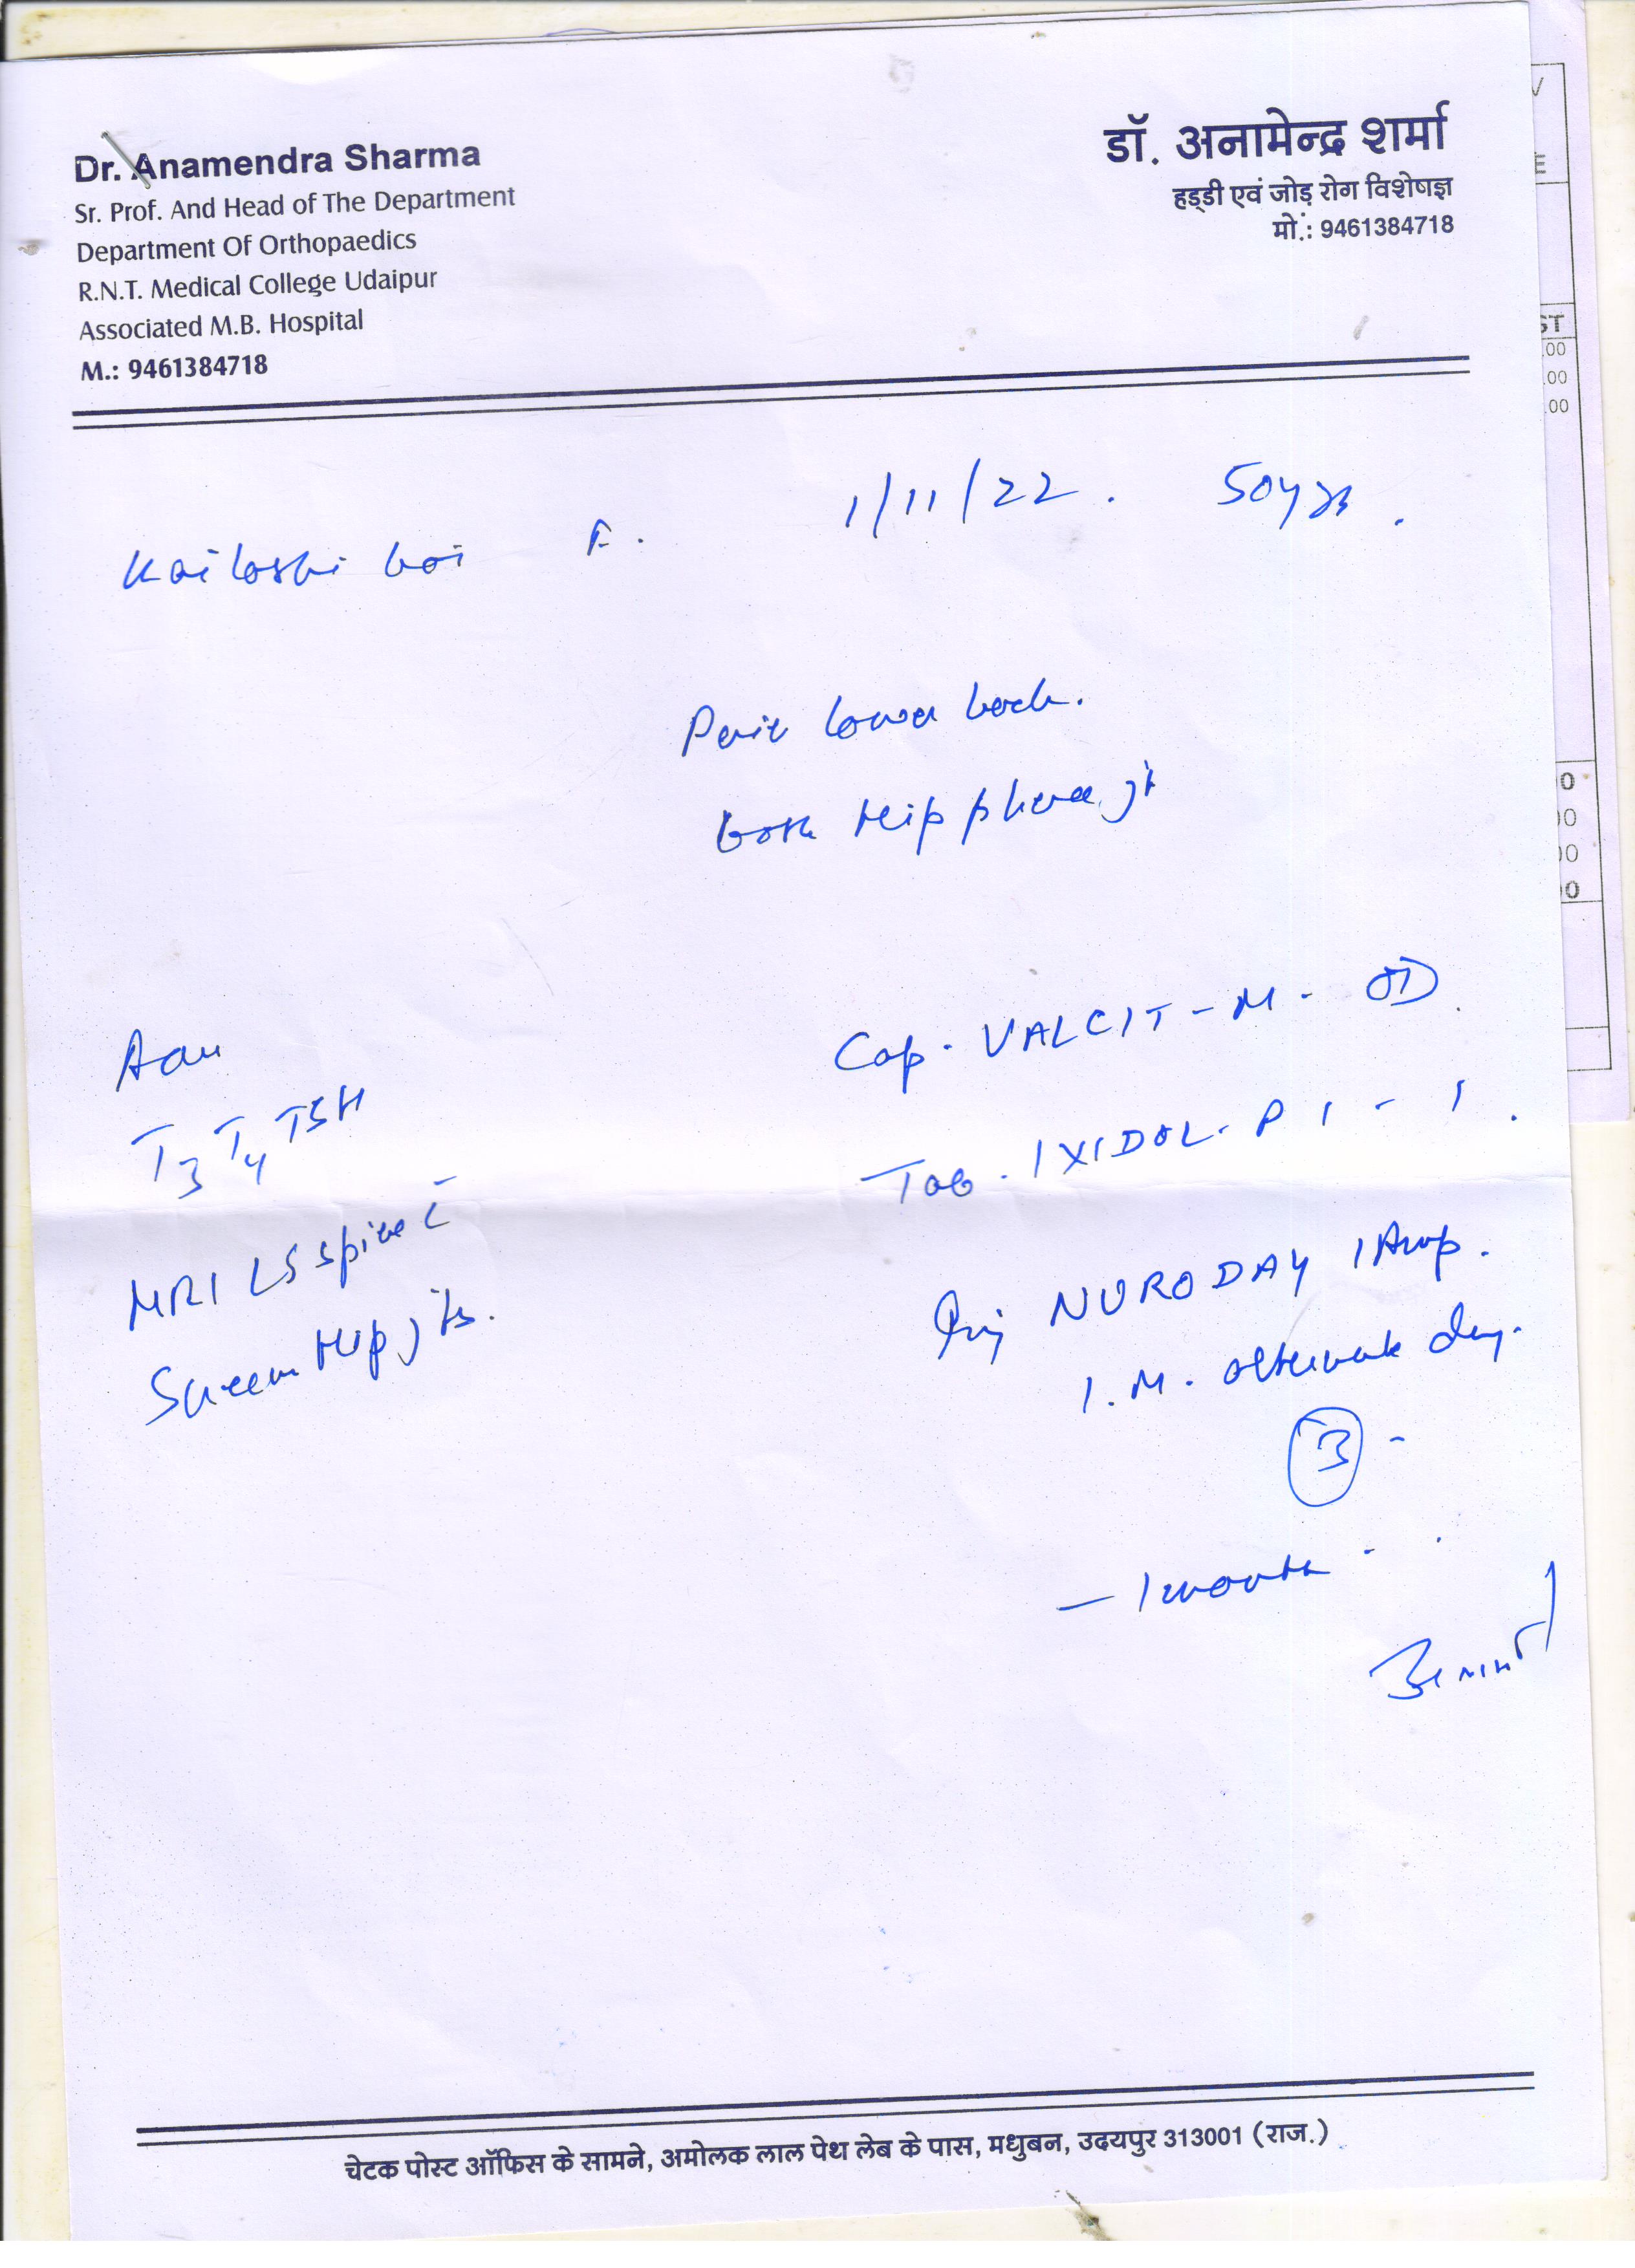 Dr. Anamendra Sharma
Sr. Prof. And Head of The Department
Department Of Orthopaedics
R.N.T. Medical College Udaipur
Associated M.B. Hospital
M.: 9461384718
डॉ. अनामेन्द्र शर्मा
हड्डी एवं जोड़ रोग विशेषज्ञ
मो.: 9461384718
1/11/22. 50yrs.
Kailashi bai F.
Pain lower back.
both Hip
Adv
T3 T4 TSH
MRI LS spine c̄
Screen Hip jts.
Cap. VALCIT-M - OD
Tab. IXIDOL-P 1 - 1.
Inj NURODAY 1 Amp.
I.M. alternate day.
3 -
- 1 month -
चेटक पोस्ट ऑफिस के सामने, अमोलक लाल पेथ लेब के पास, मधुबन, उदयपुर 313001 (राज.)
V
E
ST
.00
.00
.00
0
00
00
0